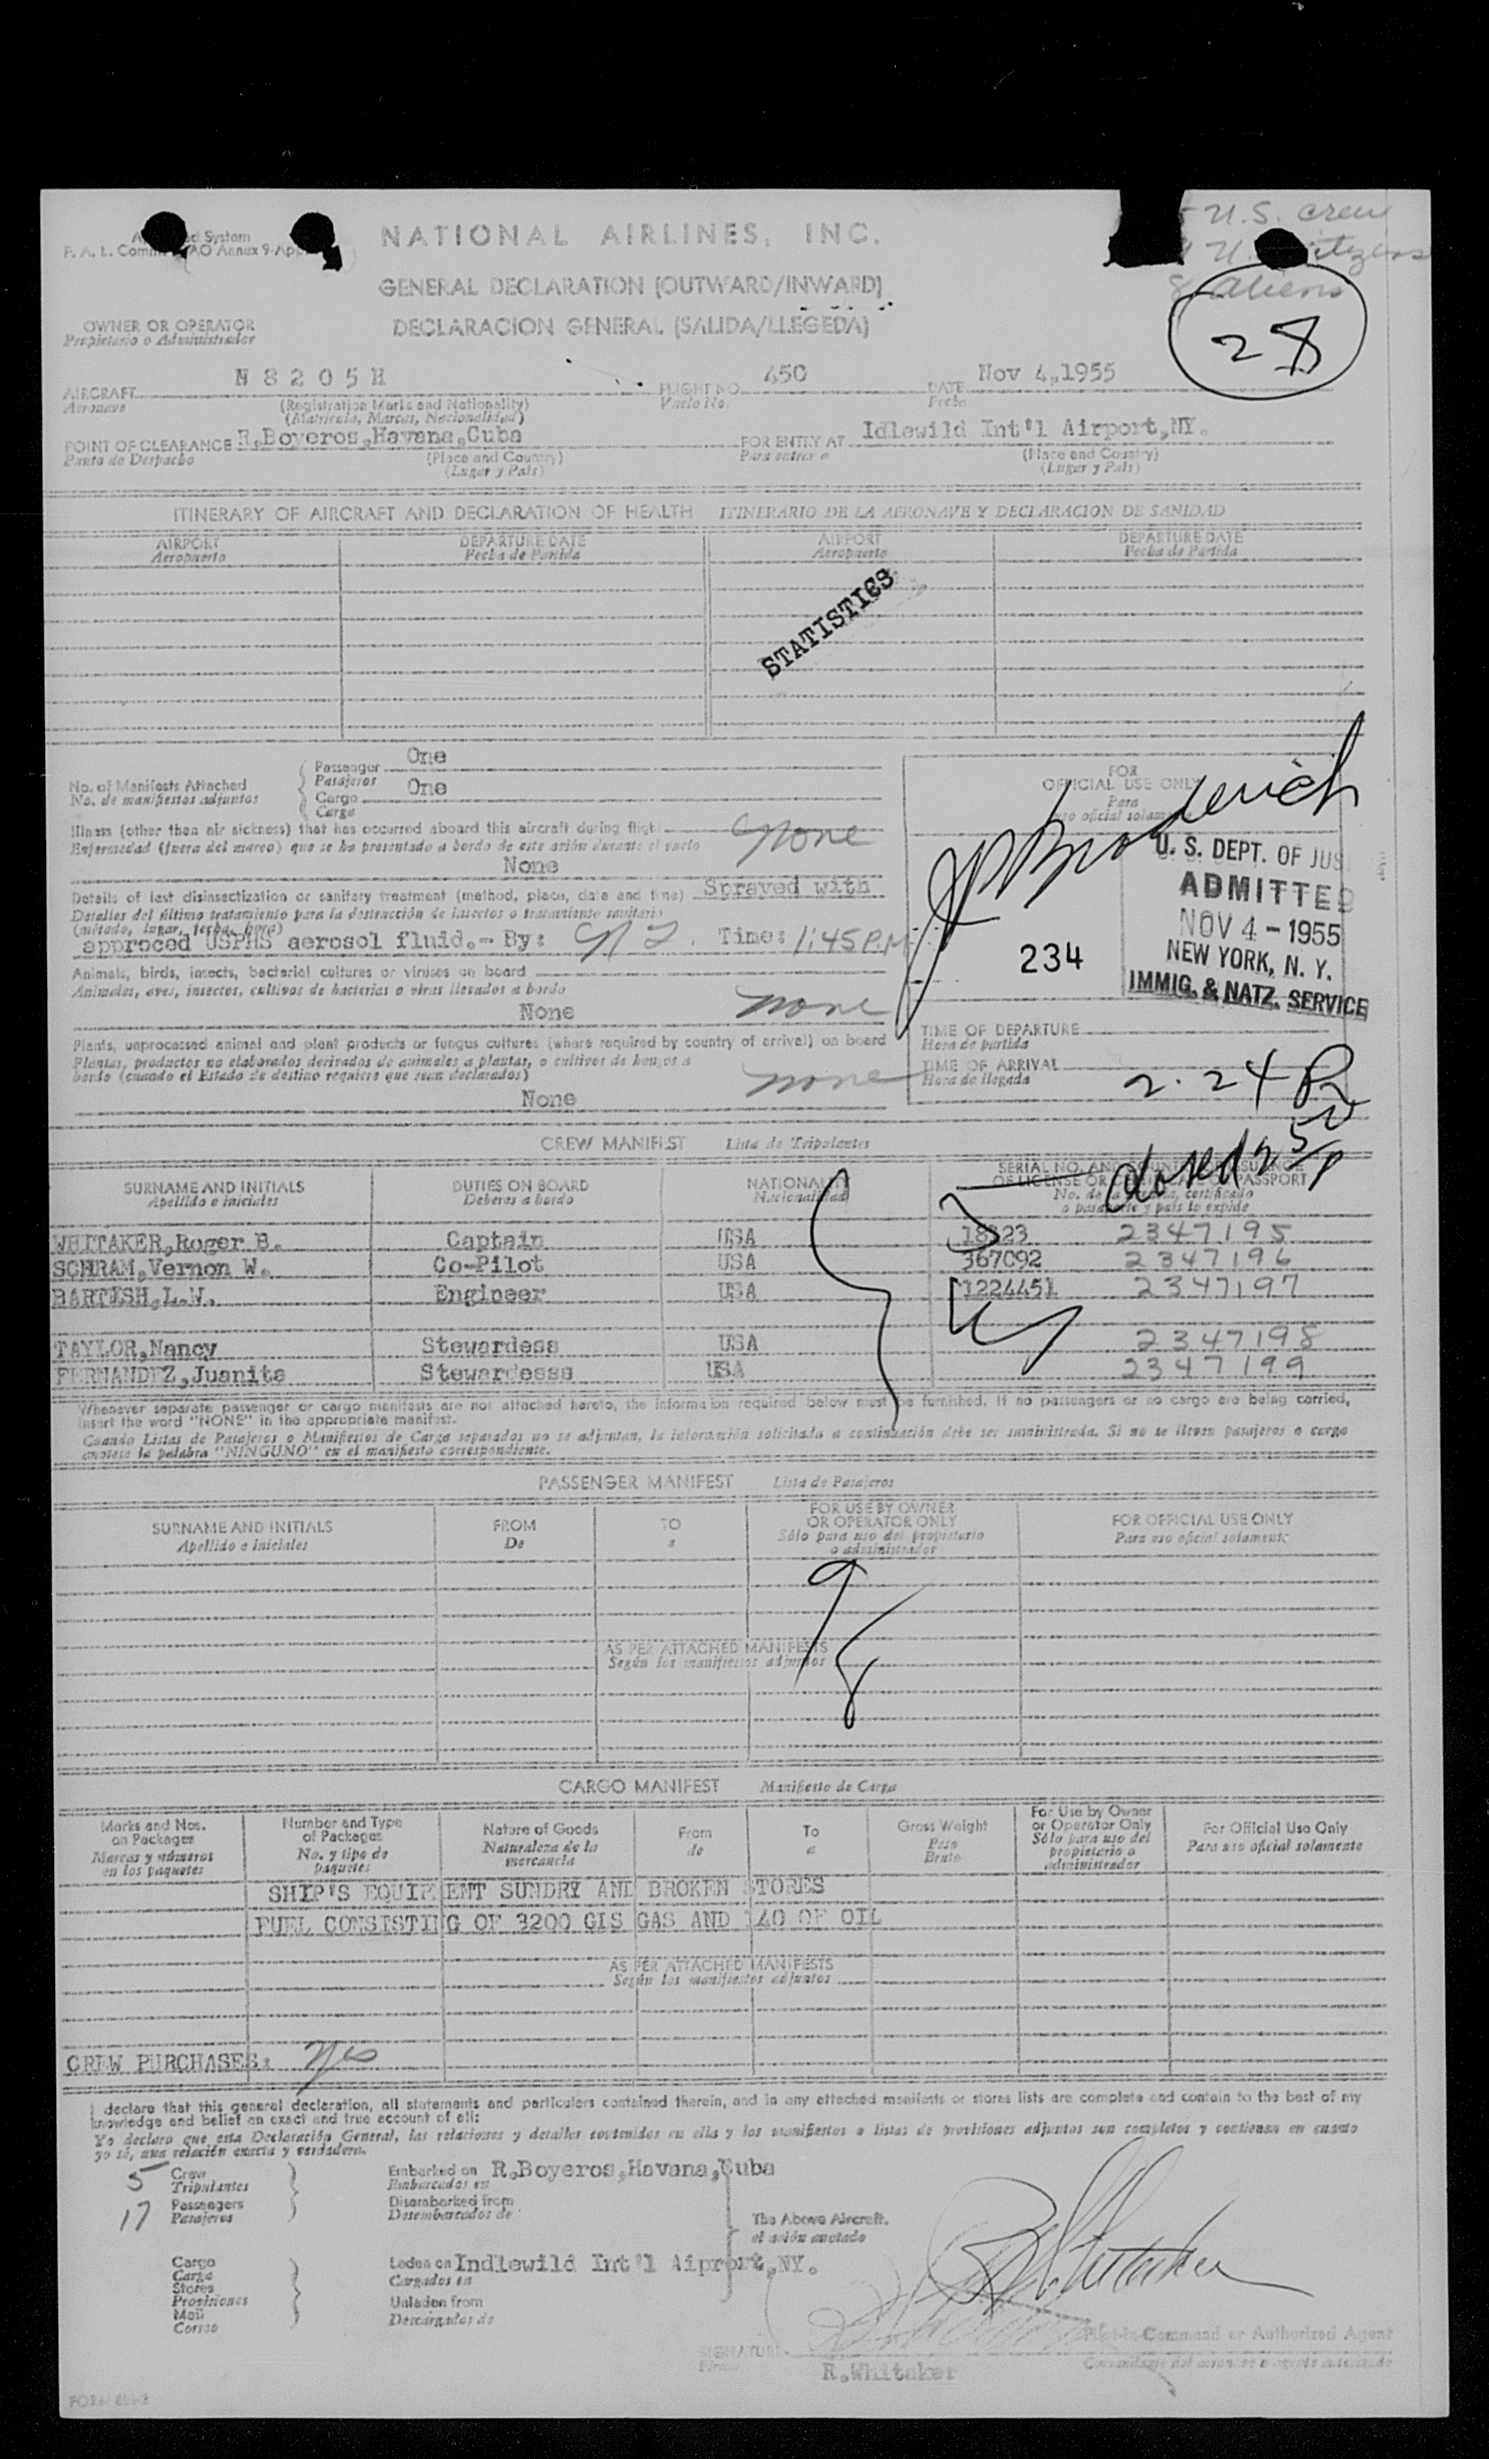 NATIONAL AIRLINES, INC.
GENERAL DECLARATION (OUTWARD/INWARD)
DECLARACION GENERAL (SALIDA/LLEGEDA)
U.S. crew
8 aliens
28
OWNER OR OPERATOR
Propietario o Administrador
AIRCRAFT N8205H FLIGHT NO 450 DATE Nov 4,1955
Aeronave (Registration Marks and Nationality) Vuelo No. Fecha
(Matricula, Marcas, Nacionalidad)
POINT OF CLEARANCE R,Boyeros,Havana,Cuba FOR ENTRY AT Idlewild Int'l Airport,NY.
Punto de Despacho (Place and Country) Para entrar a (Place and Country)
(Lugar y Pais) (Lugar y Pais)
ITINERARY OF AIRCRAFT AND DECLARATION OF HEALTH ITINERARIO DE LA AERONAVE Y DECLARACION DE SANIDAD
AIRPORT DEPARTURE DATE AIRPORT DEPARTURE DATE
Aeropuerto Fecha de Partida Aeropuerto Fecha de Partida
STATISTICS
No. of Manifests Attached Passenger One
No. de manifiestos adjuntos Pasajeros
Cargo One
Carga
Illness (other than air sickness) that has occurred aboard this aircraft during flight none
Enfermedad (fuera del mareo) que se ha presentado a bordo de este avión durante el vuelo
None
Details of last disinsectization or sanitary treatment (method, place, date and time) Sprayed with
Detalles del último tratamiento para la destrucción de insectos o tratamiento sanitario
(método, lugar, fecha, hora)
approced USPHS aerosol fluid.- By: Time: 1:45 P.M
Animals, birds, insects, bacterial cultures or viruses on board
Animales, aves, insectos, cultivos de bacterias o virus llevados a bordo
None none
Plants, unprocessed animal and plant products or fungus cultures (where required by country of arrival) on board
Plantas, productos no elaborados derivados de animales a plantas, o cultivos de hongos a
bordo (cuando el Estado de destino requiere que sean declarados) none
None
FOR
OFFICIAL USE ONLY
Para
uso oficial solamente
JP Broderick
U. S. DEPT. OF JUS
ADMITTED
NOV 4 - 1955
NEW YORK, N. Y.
IMMIG. & NATZ. SERVICE
234
TIME OF DEPARTURE
Hora de partida
TIME OF ARRIVAL 2.24 P
Hora de llegada
CREW MANIFEST Lista de Tripulantes
SURNAME AND INITIALS DUTIES ON BOARD NATIONALITY
Apellido e iniciales Deberes a bordo Nacionalidad
WHITAKER,Roger B. Captain USA 18323 2347195
SCHRAM,Vernon W. Co-Pilot USA 367092 2347196
BARTISH,L.W. Engineer USA 1224451 2347197
TAYLOR,Nancy Stewardess USA 2347198
FERNANDEZ,Juanita Stewardesss USA 2347199
Whenever separate passenger or cargo manifests are not attached hereto, the information required below must be furnished. If no passengers or no cargo are being carried,
insert the word "NONE" in the appropriate manifest.
Cuando Listas de Pasajeros o Manifiestos de Carga separados no se adjuntan, la información solicitada a continuación debe ser suministrada. Si no se llevan pasajeros o carga
anotese la palabra "NINGUNO" en el manifiesto correspondiente.
PASSENGER MANIFEST Lista de Pasajeros
SURNAME AND INITIALS FROM TO FOR USE BY OWNER OR OPERATOR ONLY FOR OFFICIAL USE ONLY
Apellido e iniciales De a Sólo para uso del propietario o administrador Para uso oficial solamente
9
8
AS PER ATTACHED MANIFESTS
Según los manifiestos adjuntos
CARGO MANIFEST Manifiesto de Carga
Marks and Nos. on Packages Number and Type of Packages Nature of Goods From To Gross Weight For Use by Owner or Operator Only For Official Use Only
Marcas y números en los paquetes No. y tipo de paquetes Naturaleza de la mercancia de a Peso Bruto Sólo para uso del propietario o administrador Para uso oficial solamente
SHIP'S EQUIPMENT SUNDRY AND BROKEN STORES
FUEL CONSISTING OF 3200 GLS GAS AND 140 OF OIL
AS PER ATTACHED MANIFESTS
Según los manifiestos adjuntos
CREW PURCHASES: yes
I declare that this general declaration, all statements and particulars contained therein, and in any attached manifests or stores lists are complete and contain to the best of my
knowledge and belief an exact and true account of all:
Yo declaro que esta Declaración General, las relaciones y detalles contenidos en ella y los manifiestos o listas de provisiones adjuntos son completos y contienen en cuanto
yo sé, una relación exacta y verdadera.
5 Crew Embarked on R,Boyeros,Havana,Cuba
Tripulantes Embarcados en
17 Passengers Disembarked from
Pasajeros Desembarcados de
The Above Aircraft.
el avión anotado
Cargo Laden on Indlewild Int'l Aiprort,NY.
Carga Cargados en
Stores Unladen from
Provisiones Descargados de
Mail
Correo
R Whitaker
Pilot-in-Command or Authorized Agent
SIGNATURE
Firma R,Whitaker